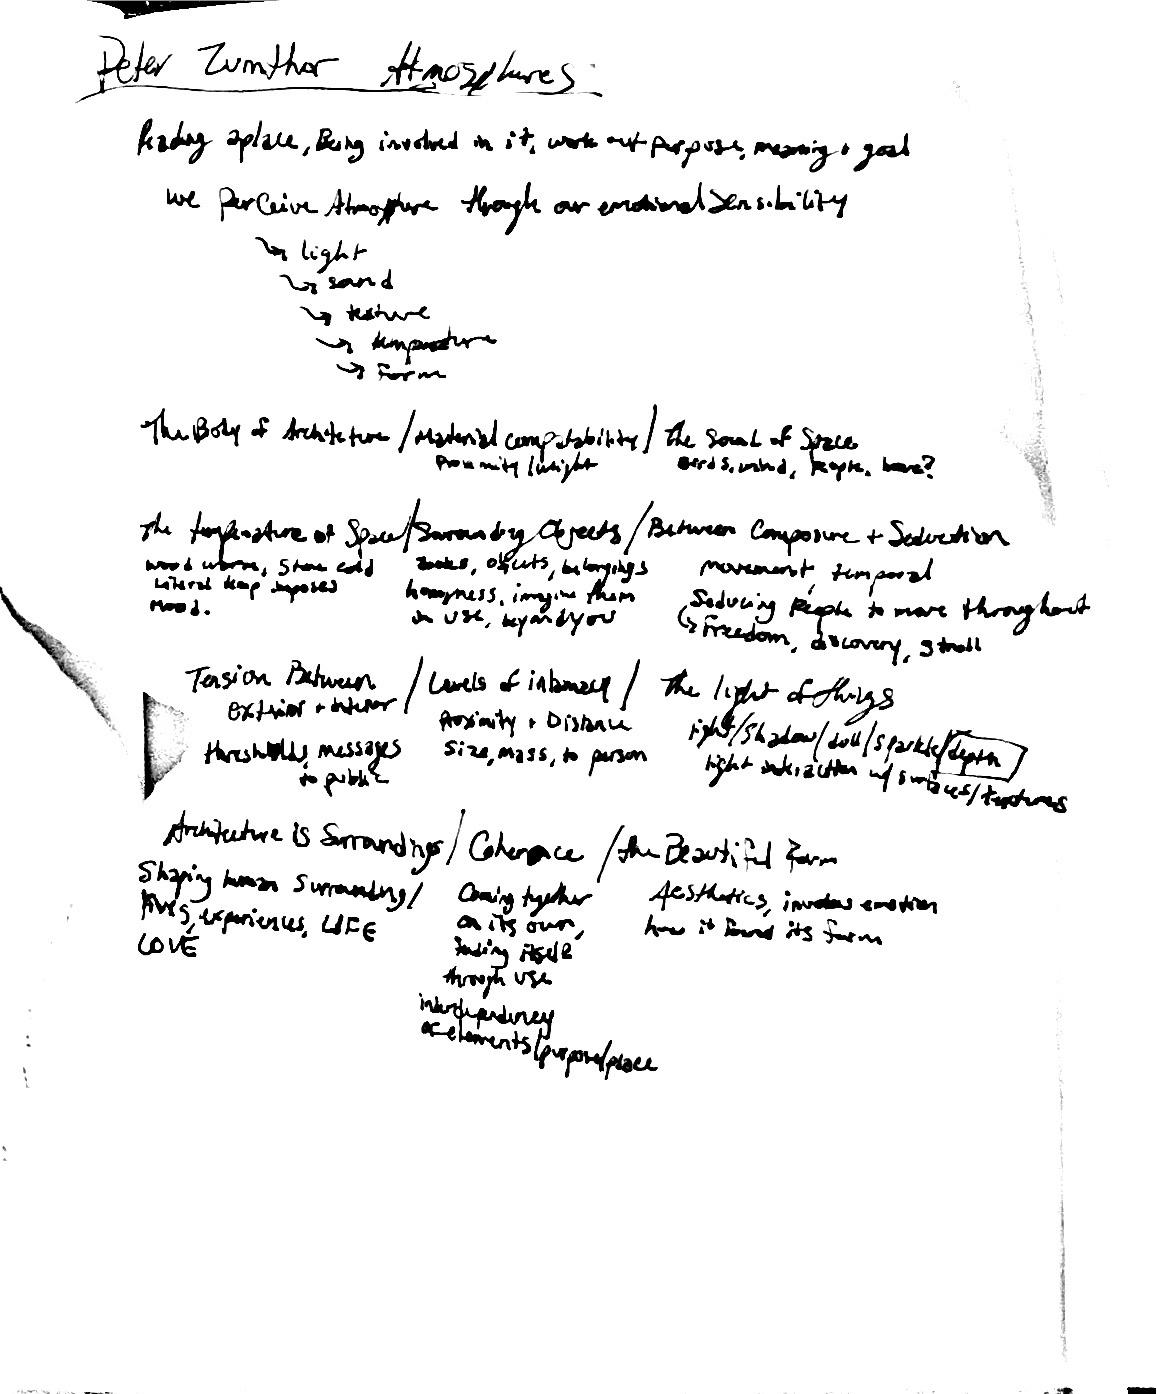 Peter Zumthor Atmospheres
Reading a place, Being involved in it, work out purpose, meaning + goal
we perceive Atmosphere through our emotional sensibility
↳ light
↳ sound
↳ texture
↳ temperature
↳ Form
The Body of Architecture / Material compatability / the Sound of Space
Proximity / weight
birds, wind, people, home?
The temperature of Space / Surrounding Objects / Between Composure + Seduction
wood warm, Stone cold
Literal temp imposes
Mood.
objects, belongings
homeyness, imagine them
in use, beyond you
movement, temporal
Seducing People to move throughout
↳ Freedom, discovery, stroll
Tension Between / Levels of intamacy / The light of things
exterior + interior
thresholds, messages
to public
Proximity + Distance
Size, mass, to person
light/Shadow/dull/sparkle/depth
light interaction w/ surfaces/textures
Architecture is Surroundings / Coherence / the Beautiful Form
Shaping human surrounding/
lives, experiences, LIFE
LOVE
Coming together
on its own,
finding itself
through use
interdependency
of elements/purpose/place
Aesthetics, involves emotion
how it found its form